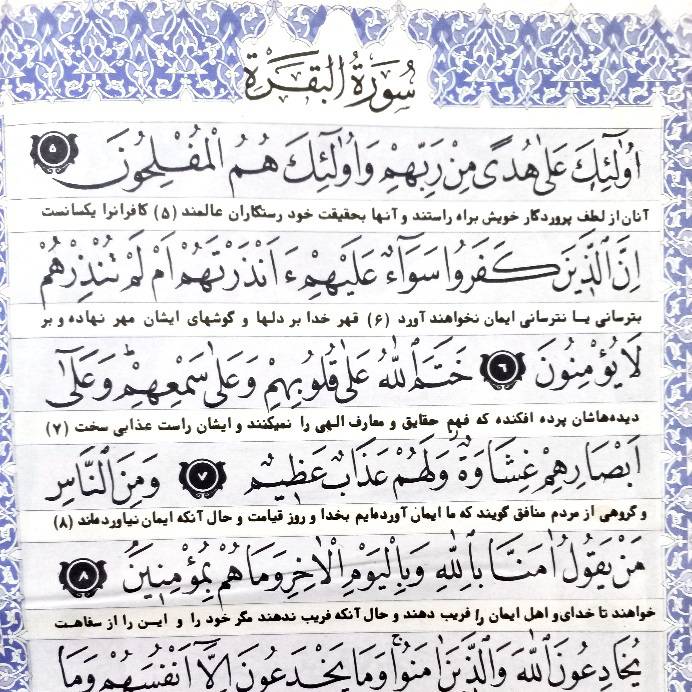 سُورَةُ الْبَقَرَةِ
اُولٰٓئِكَ عَلٰى هُدًى مِنْ رَبِّهِمْ وَاُولٰٓئِكَ هُمُ الْمُفْلِحُونَ ٥
آنان از لطف پروردگار خویش براه راستند و آنها بحقیقت خود رستگاران عالمند (۵) کافرانرا یکسانست
اِنَّ الَّذِينَ كَفَرُوا سَوَآءٌ عَلَيْهِمْ ءَاَنْذَرْتَهُمْ اَمْ لَمْ تُنْذِرْهُمْ
بترسانی یـا نترسانی ایمان نخواهند آورد (۶) قهر خدا بر دلها و گوشهای ایشان مهر نهاده و بر
لَا يُؤْمِنُونَ ٦ خَتَمَ اللّٰهُ عَلٰى قُلُوبِهِمْ وَعَلٰى سَمْعِهِمْ ۖ وَعَلٰٓى
دیده‌هاشان پرده افکنده که فهم حقایق و معارف الهی را نمیکنند و ایشان راست عذابی سخت (۷)
اَبْصَارِهِمْ غِشَاوَةٌ وَلَهُمْ عَذَابٌ عَظِيمٌ ٧ وَمِنَ النَّاسِ
و گروهی از مردم منافق گویند که ما ایمان آورده‌ایم بخدا و روز قیامت و حال آنکه ایمان نیاورده‌اند (۸)
مَنْ يَقُولُ اٰمَنَّا بِاللّٰهِ وَبِالْيَوْمِ الْاٰخِرِ وَمَا هُمْ بِمُؤْمِنِينَ ٨
خواهند تا خدای و اهل ایمان را فریب دهند و حال آنکه فریب ندهند مگر خود را و ایـن را از سفاهـت
يُخَادِعُونَ اللّٰهَ وَالَّذِينَ اٰمَنُوا وَمَا يَخْدَعُونَ اِلَّآ اَنْفُسَهُمْ وَمَا